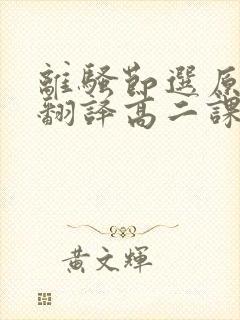 離騷節選原
翻譯高二課
黃文輝